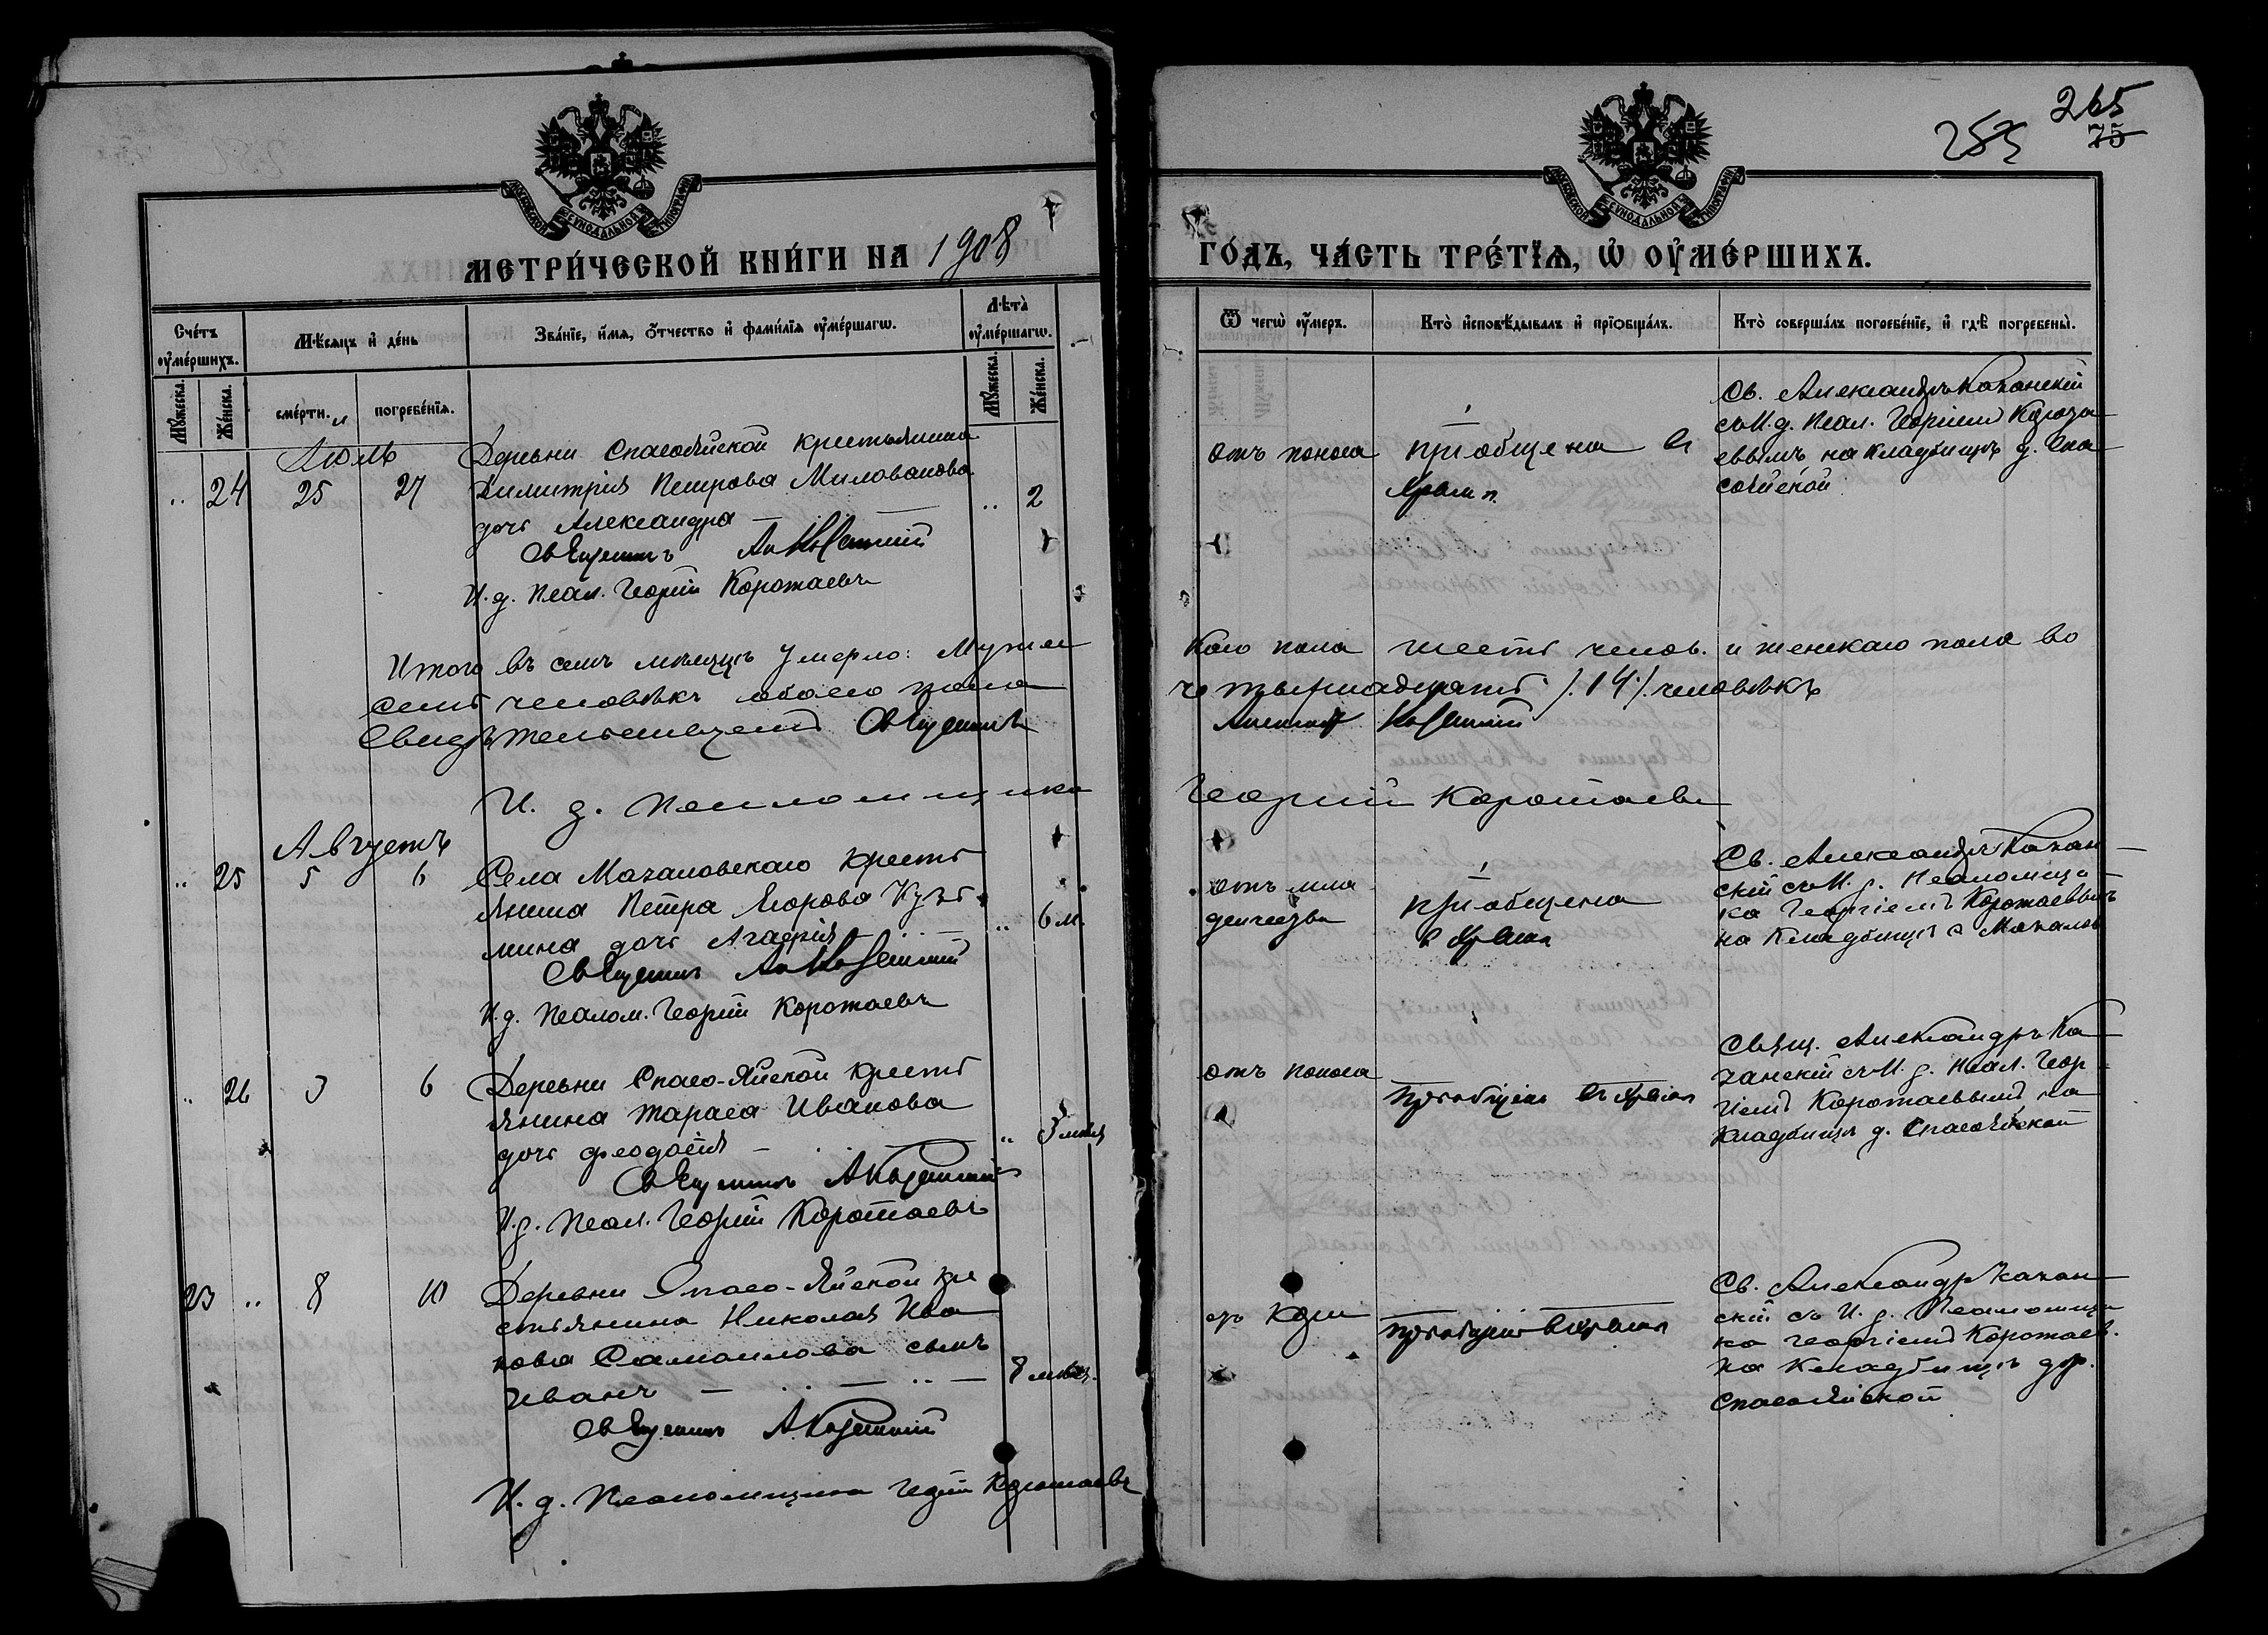 265
255 75
МОСКОВСКОЙ СѴНОДАЛЬНОЙ ТИПОГРАФІИ
МОСКОВСКОЙ СѴНОДАЛЬНОЙ ТИПОГРАФІИ
МЕТРИ́ЧЕСКОЙ КНИ́ГИ НА 1908
ГО́ДЪ, ЧА́СТЬ ТРЕ́ТЇѦ, Ѡ҆ ОУ҆МЕ́РШИХЪ.
Счетъ оумершихъ.
Мѣсяцъ и день
Званіе, имя, отчество и фамилія оумершагѡ.
Лѣта оумершагѡ.
Мужеска. Женска.
смерти. погребенія.
Мужеска. Женска.
Ѿ чегѡ оумеръ.
Кто исповѣдывалъ и пріобщалъ.
Кто совершалъ погребеніе, и гдѣ погребены.
Июль
.. 24 25 27
Деревни Спасояйской крестьянина
Димитрия Петрова Милованова
дочь Александра .. 2
Священникъ Ал. Казанский
И. д. Псал. Георгий Коротаевъ
отъ поноса
приобщена въ
храмѣ
Св. Александръ Казанский
съ И. д. Псал. Георгием Корота
евымъ на кладбищѣ д. Спа
сояйской
Итого въ семъ мѣсяцѣ умерло: Мужес
кого пола шесть челов. и женскаго пола во
семь человѣкъ обоего пола
четырнадцать /.14/. человѣкъ
Свидѣтельствуют Священникъ
Александръ Казанский
И. д. Псаломщика
Георгий Коротаевъ
Августъ
.. 25 5 6
Села Мазаловскаго кресть
янина Петра Егорова Кузь
мина дочь Агафия .. 6 м.
Священникъ Ал. Казанский
И. д. Псалом. Георгий Коротаевъ
отъ мла
денчества
приобщена
в храмѣ
Св. Александръ Казан
ский съ И. д. Псаломщи
ка Георгиемъ Коротаевымъ
на кладбищѣ с Мазалов
.. 26 5 6
Деревни Спасо-Яйской кресть
янина Тараса Иванова
дочь Феодосия .. 3 мѣся
Священникъ А Казанский
И. д. Псал. Георгий Коротаевъ
отъ поноса
приобщена въ храмѣ
Свящ. Александръ Ка
занский съ И. д. Псал. Геор
гием Коротаевым на
кладбищѣ д. Спасояйской
23 .. 8 10
Деревни Спасо-Яйской кре
стьянина Николая Ива
нова Самоилова сынъ
Иванъ 8 мѣся.
Священникъ А. Казанский
И. д. Псаломщика Георгий Коротаевъ
приобщенъ в храмѣ
Св. Александръ Казан
ский съ И. д. Псаломщи
ка Георгием Коротаев.
на кладбищѣ дер.
Спасояйской